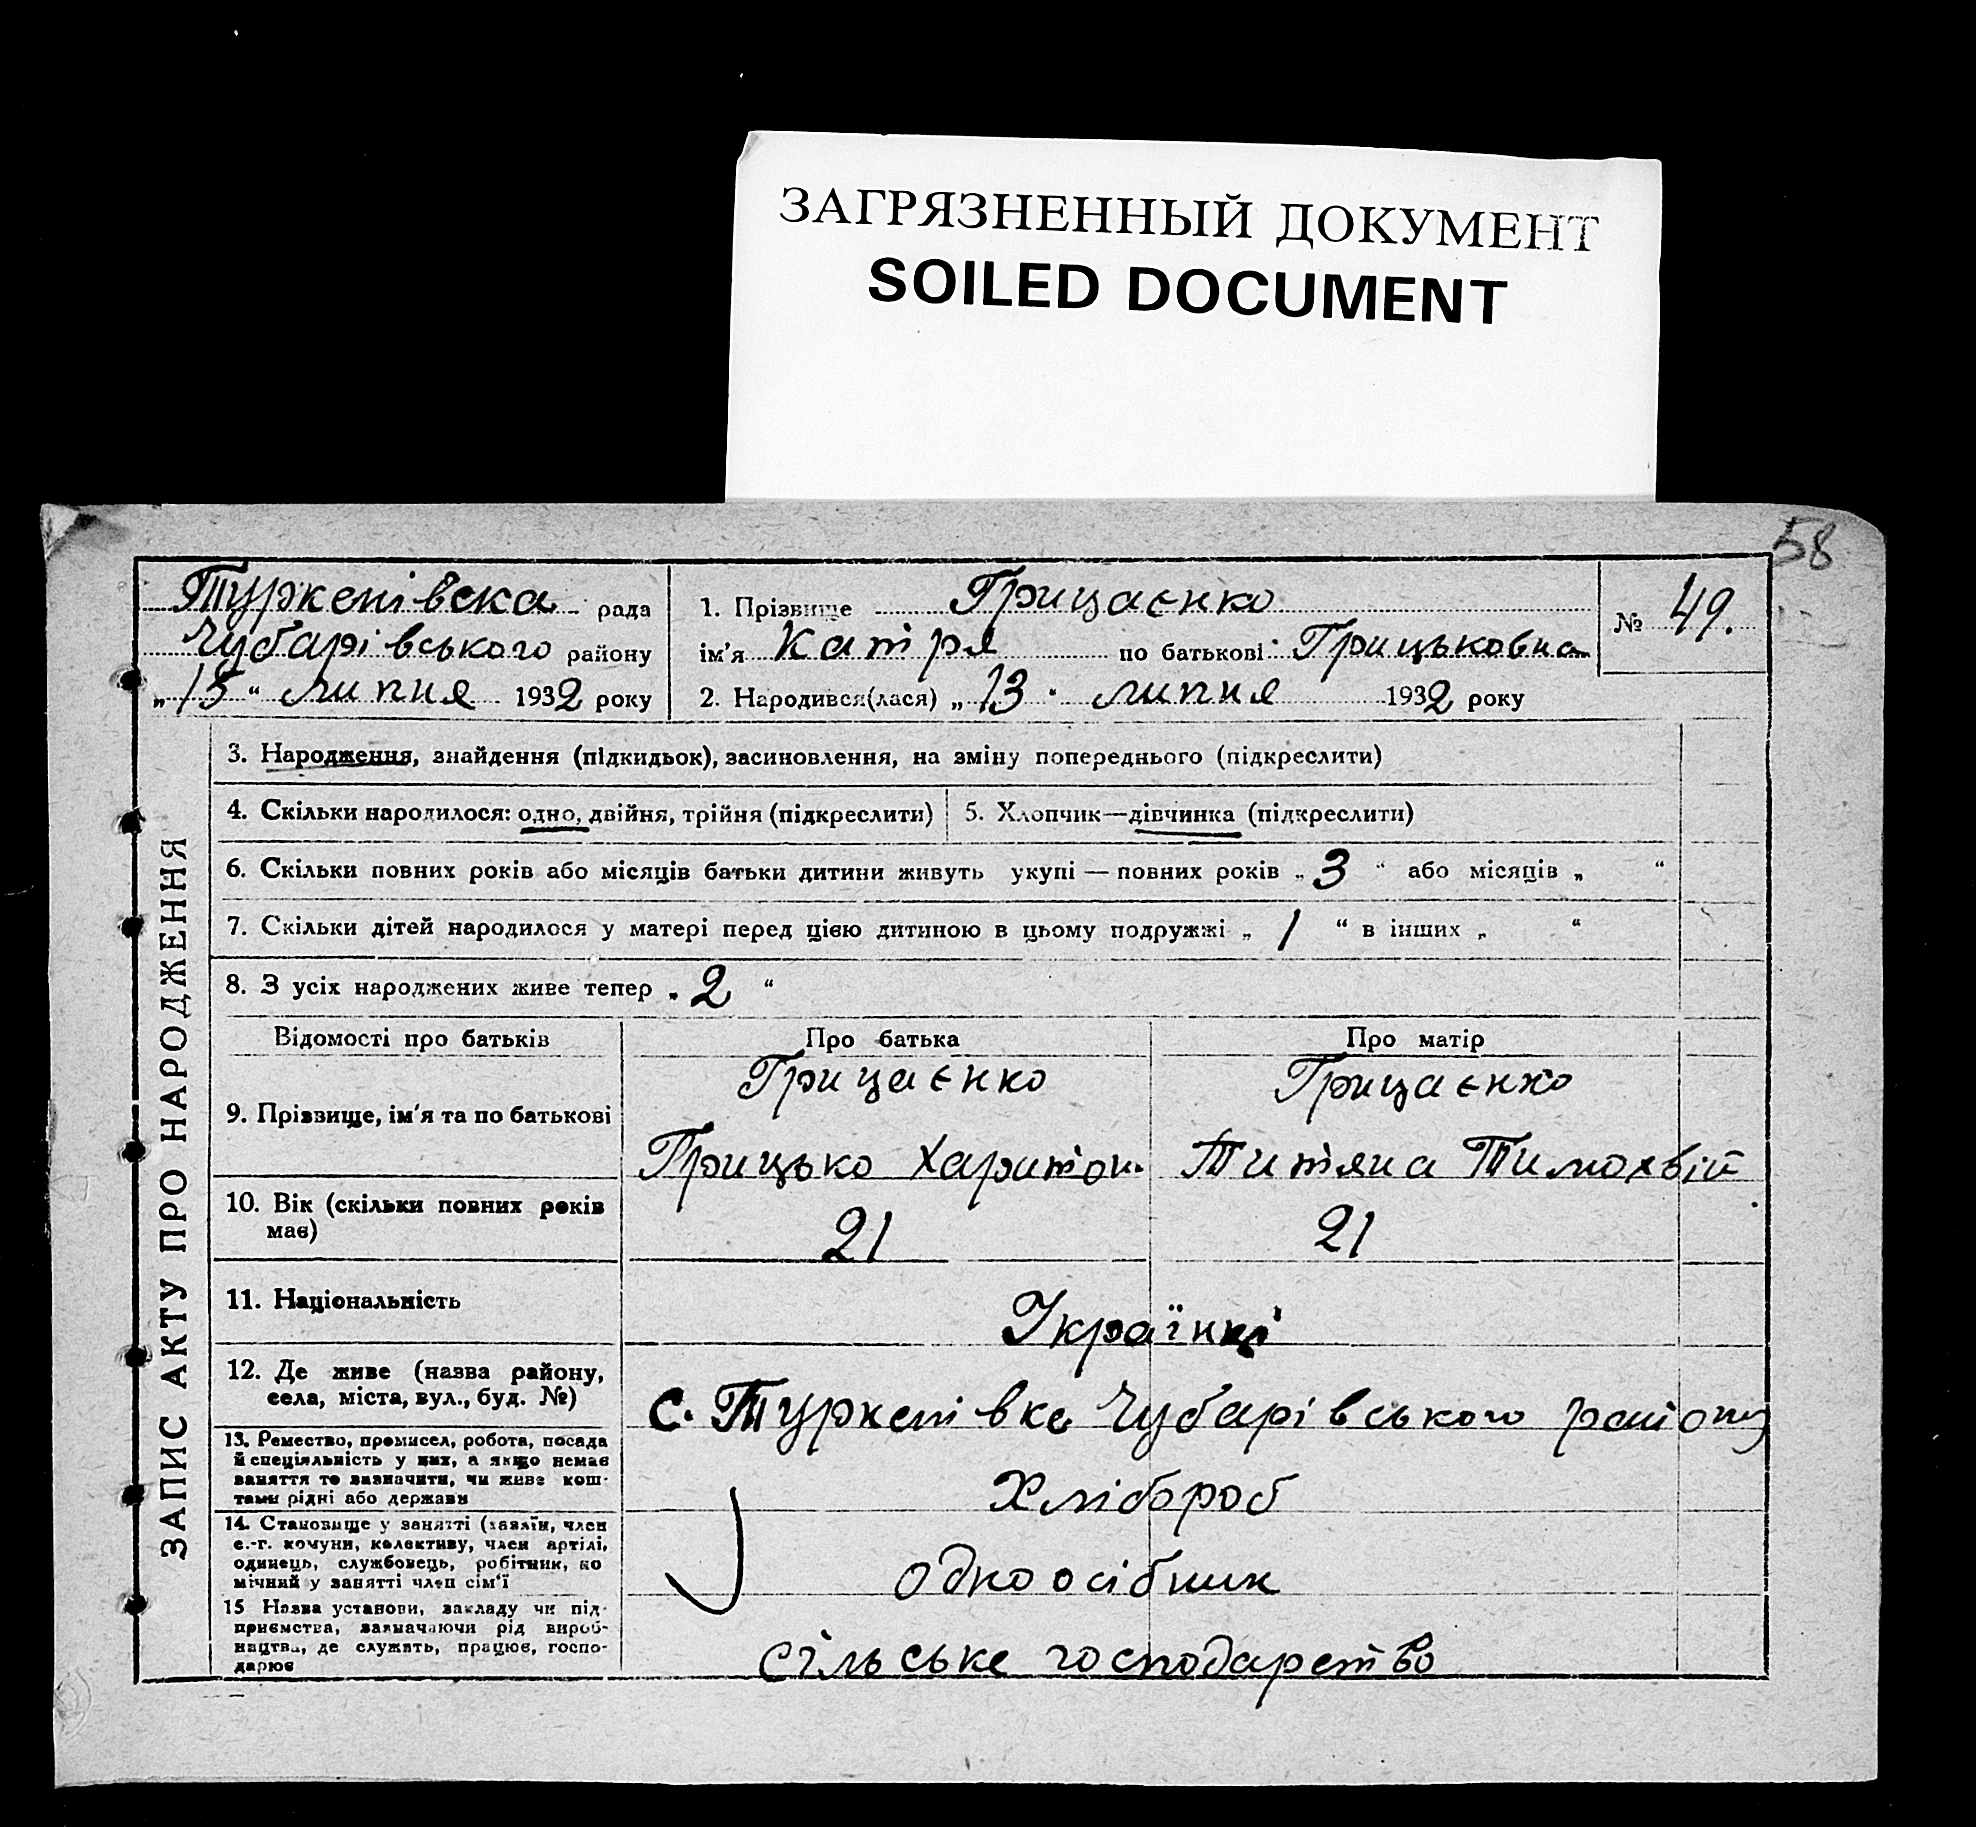 ЗАГРЯЗНЕННЫЙ ДОКУМЕНТ
SOILED DOCUMENT
58
Туркенівска рада
Чубарівського району
„15“ липня 1932 року
1. Прізвище Грицаєнко
ім'я Катря по батькові Грицьковна
2. Народився(лася) „13“ липня 1932 року
№ 49.
ЗАПИС АКТУ ПРО НАРОДЖЕННЯ
3. Народження, знайдення (підкидьок), засиновлення, на зміну попереднього (підкреслити)
4. Скільки народилося: одно, двійня, трійня (підкреслити)
5. Хлопчик—дівчинка (підкреслити)
6. Скільки повних років або місяців батьки дитини живуть укупі — повних років „3“ або місяців „ “
7. Скільки дітей народилося у матері перед цією дитиною в цьому подружжі „1“ в інших „ “
8. З усіх народжених живе тепер „2“
Відомості про батьків Про батька Про матір
9. Прізвище, ім'я та по батькові
Грицаєнко Грицаєнко
Грицько Харитон. Титяна Тимохвій.
10. Вік (скільки повних років
має)
21 21
11. Національність
Українці
12. Де живе (назва району,
села, міста, вул., буд. №)
с. Туркенівка Чубарівського району
13. Ремество, промисел, робота, посада
й спеціяльність у них, а якщо немає
заняття то зазначити, чи живе кош-
тами рідні або держави
Хлібороб
14. Становище у занятті (хазяїн, член
с.-г. комуни, колективу, член артілі,
одинець, службовець, робітник, по
мічний у занятті член сім'ї
одноосібник
15 Назва установи, закладу чи під-
приємства, зазначаючи рід вироб-
ництва, де служить, працює, госпо-
дарює
сільське господарство